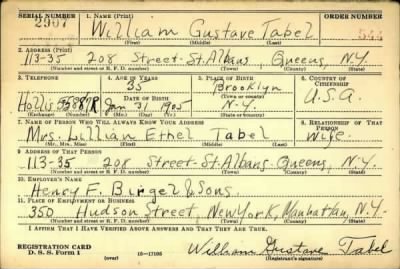 SERIAL NUMBER 1. NAME (Print) ORDER NUMBER
William Gustave Tabel
(First) (Middle) (Last)
2. ADDRESS (Print)
113-35 208 Street-St. Albans, Queens, N.Y.
(Number and street or R. F. D. number) (Town) (County) (State)
3. TELEPHONE 4. AGE IN YEARS 5. PLACE OF BIRTH 6. COUNTRY OF CITIZENSHIP
35 Brooklyn
Hollis DATE OF BIRTH (Town or county) U.S.A.
Jan 31 1905 N.Y.
(Exchange) (Number) (Mo.) (Day) (Yr.) (State or country)
7. NAME OF PERSON WHO WILL ALWAYS KNOW YOUR ADDRESS 8. RELATIONSHIP OF THAT PERSON
Mrs. Lillian Ethel Tabel Wife
(Mr., Mrs., Miss) (First) (Middle) (Last)
9. ADDRESS OF THAT PERSON
113-35 208 Street-St. Albans-Queens, N.Y.
(Number and street or R. F. D. number) (Town) (County) (State)
10. EMPLOYER'S NAME
Henry F. Birgel & Sons.
11. PLACE OF EMPLOYMENT OR BUSINESS
350 Hudson Street, New York, Manhattan, N.Y.
(Number and street or R. F. D. number) (Town) (County) (State)
I AFFIRM THAT I HAVE VERIFIED ABOVE ANSWERS AND THAT THEY ARE TRUE.
REGISTRATION CARD
D. S. S. Form 1 (over) 16-17105 William Gustave Tabel
(Registrant's signature)